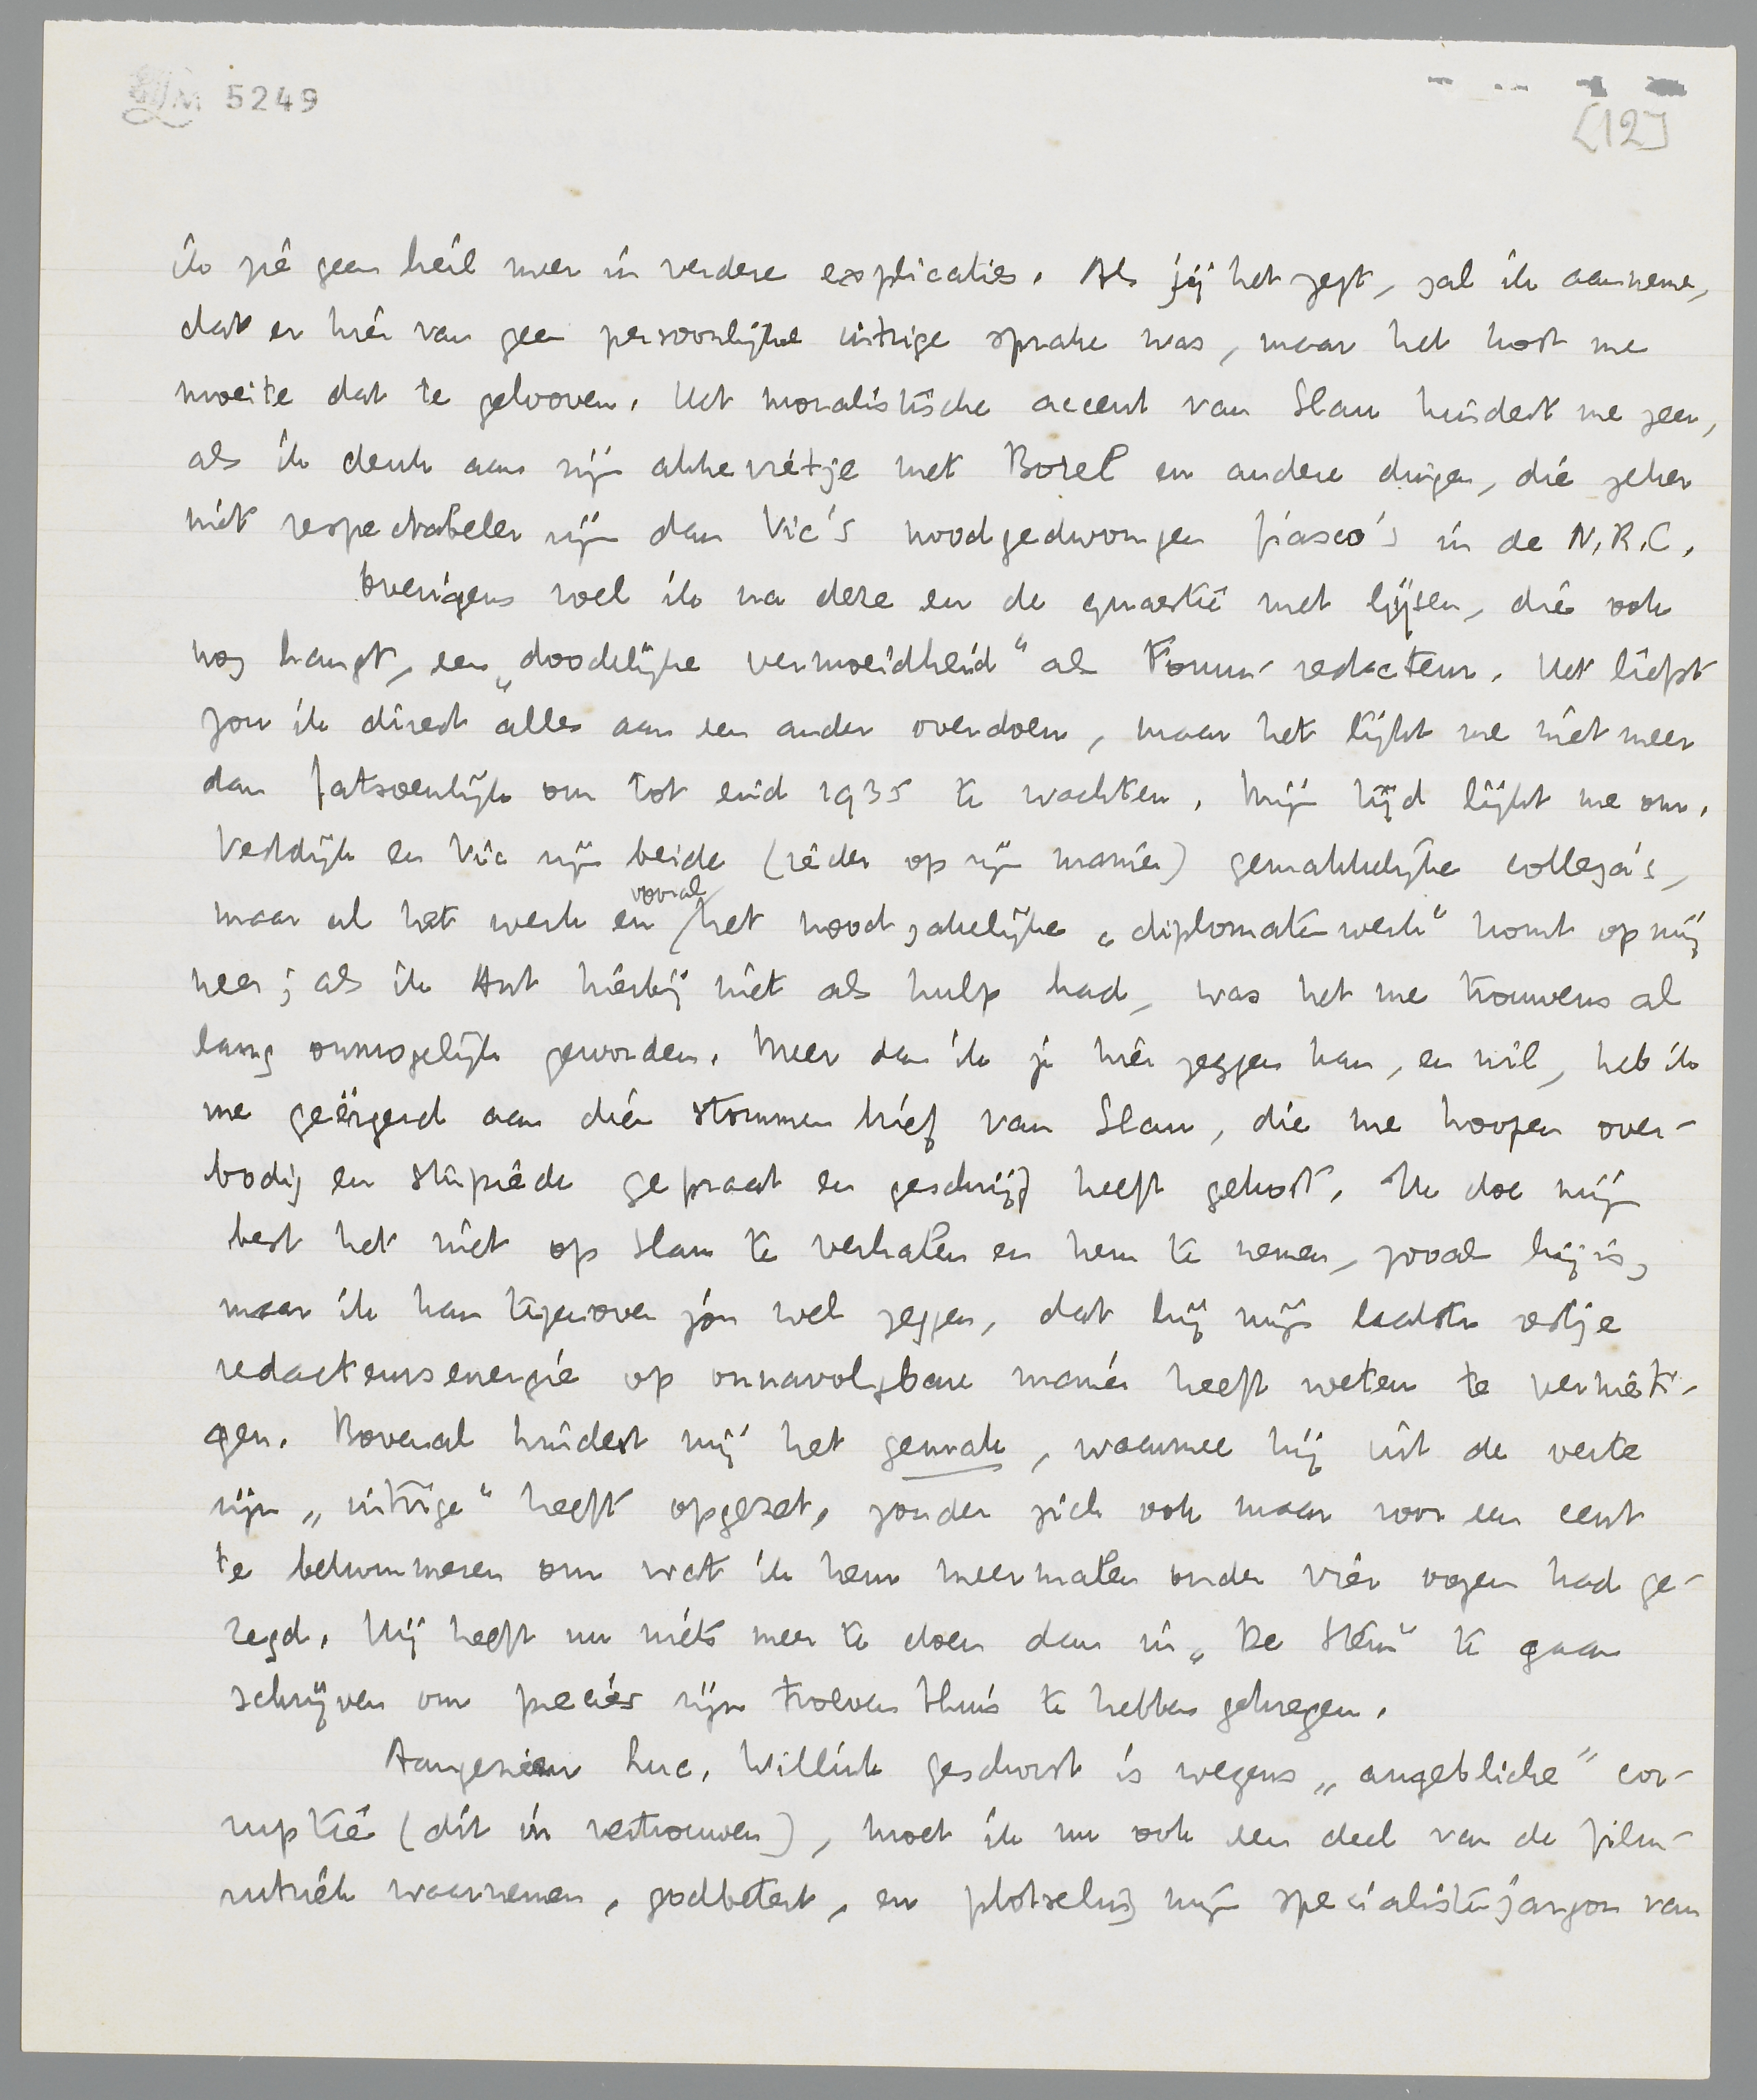 LM 5249
[12]
ik zie geen heil meer in verdere explicaties. Als jij het zegt, zal ik aannemen,
dat er hier van geen persoonlijke intrige sprake was, maar het kost me
moeite dat te gelooven. Het moralistische accent van Slau hindert me zeer,
als ik denk aan zijn akkevietje met Borel en andere dingen, die zeker
niet respectabeler zijn dan Vic's noodgedwongen fiasco's in de N.R.C.
Overigens voel ik na deze en de quaestie met Lijsen, die ook
nog hangt, een „doodelijke vermoeidheid" als Forum-redacteur. Het liefst
zou ik direct alles aan een ander overdoen, maar het lijkt me niet meer
dan fatsoenlijk om tot eind 1935 te wachten. Mijn tijd lijkt me om.
Vestdijk en Vic zijn beide (ieder op zijn manier) gemakkelijke collega's,
maar al het werk en vooral het noodzakelijke „diplomatenwerk" komt op mij
neer; als ik Ant hierbij niet als hulp had, was het me trouwens al
lang onmogelijk geworden. Meer dan ik je hier zeggen kan, en wil, heb ik
me geërgerd aan dien stommen brief van Slau, die me hoopen over-
bodig en stupiede gepraat en geschrijf heeft gekost. Ik doe mijn
best het niet op Slau te verhalen en hem te nemen, zooals hij is,
maar ik kan tegenover jou wel zeggen, dat hij mijn laatste restje
redacteursenergie op onnavolgbare manier heeft weten te vernieti-
gen. Bovenal hindert mij het gemak, waarmee hij uit de verte
zijn „intrige" heeft opgezet, zonder zich ook maar voor een cent
te bekommeren om wat ik hem meermalen onder vier oogen had ge-
zegd. Hij heeft nu niets meer te doen dan in „De Stem" te gaan
schrijven om precies zijn troeven thuis te hebben gekregen.
Aangezien Luc. Willink geschorst is wegens „angebliche" cor-
ruptie (dit in vertrouwen), moet ik nu ook een deel van de film-
rubriek waarnemen, godbetert, en plotseling mijn specialistenjargon van